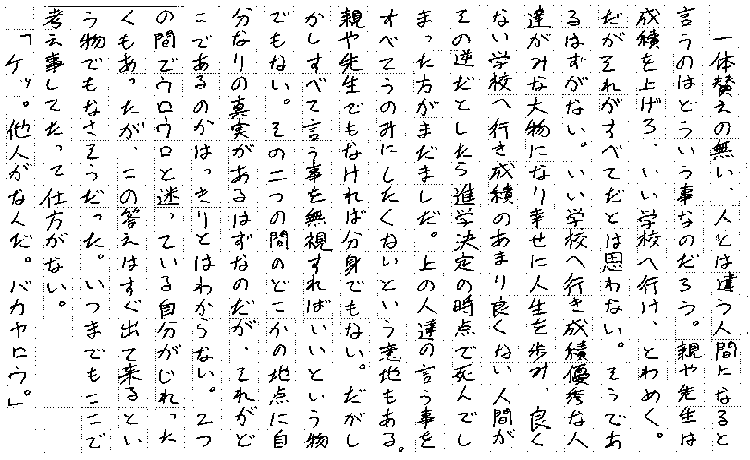 一体替えの無い、人とは違う人間になると
言うのはどういう事なのだろう。親や先生は
成績を上げろ、いい学校へ行け、とわめく。
だがそれがすべてだとは思わない。そうであ
るはずがない。いい学校へ行き成績優秀な人
達がみな大物になり幸せに人生を歩み、良く
ない学校へ行き成績のあまり良くない人間が
その逆だとしたら進学決定の時点で死んでし
まった方がまだましだ。上の人達の言う事を
すべてうのみにしたくないという意地もある。
親や先生でもなければ分身でもない。だがし
かしすべて言う事を無視すればいいという物
でもない。その二つの間のどこかの地点に自
分なりの真実があるはずなのだが、それがど
こであるのかはっきりとはわからない。二つ
の間でウロウロと迷っている自分がじれった
くもあったが、この答えはすぐ出て来るとい
う物でもなさそうだった。いつまでもここで
考え事してたって仕方がない。
「ケッ。他人がなんだ。バカヤロウ。」